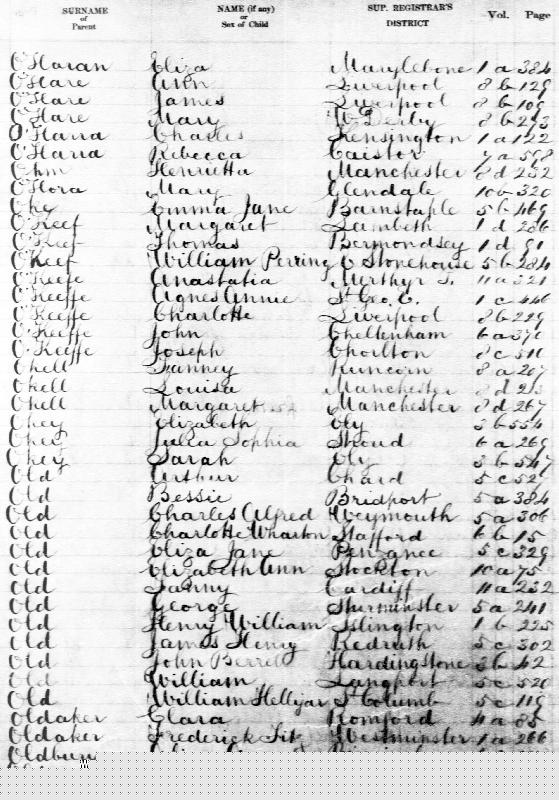 SURNAME of Parent NAME (if any) or Sex of Child SUP. REGISTRAR'S DISTRICT Vol. Page
O'Haran Eliza Marylebone 1 a 384
O'Hare Ann Liverpool 8 b 129
O'Hare James Liverpool 8 b 109
O'Hare Mary W. Derby 8 b
O'Harra Charles Kensington 1 a 122
O'Harra Rebecca Caistor 7 a 598
Ohm Henrietta Manchester 8 d 252
O'Hora Mary Glendale 10 b 320
Oke Emma Jane Barnstaple 5 b 469
O'Keef Margaret Lambeth 1 d 286
O'Keef Thomas Bermondsey 1 d 91
O'Keef William Perring E Stonehouse 5 b 284
O'Keefe Anastatia Merthyr T. 11 a 321
O'Keeffe Agnes Annie St Geo. E. 1 c 446
O'Keeffe Charlotte Liverpool 8 b 229
O'Keeffe John Cheltenham 6 a 370
O'Keeffe Joseph Chorlton 8 c 510
Okell Fanney Runcorn 8 a 207
Okell Louisa Manchester 8 d
Okell Margaret Manchester 8 d 267
Okey Elizabeth Ely 3 b 554
Okey Julia Sophia Stroud 6 a 269
Okey Sarah Ely 3 b 547
Old Arthur Chard 5 c 527
Old Bessie Bridport 5 a 384
Old Charles Alfred Weymouth 5 a 306
Old Charlotte Wharton Stafford 6 b 15
Old Eliza Jane Penzance 5 c 329
Old Elizabeth Ann Stockton 10 a 75
Old Fanny Cardiff 11 a 232
Old George Sturminster 5 a 241
Old Henry William Islington 1 b 225
Old James Henry Redruth 5 c 302
Old John Berrill Hardingstone 3 b 42
Old William Langport 5 c 520
Old William Hellyar St Columb 5 c 119
Oldaker Clara Romford 4 a 85
Oldaker Frederick Fit Westminster 1 a 266